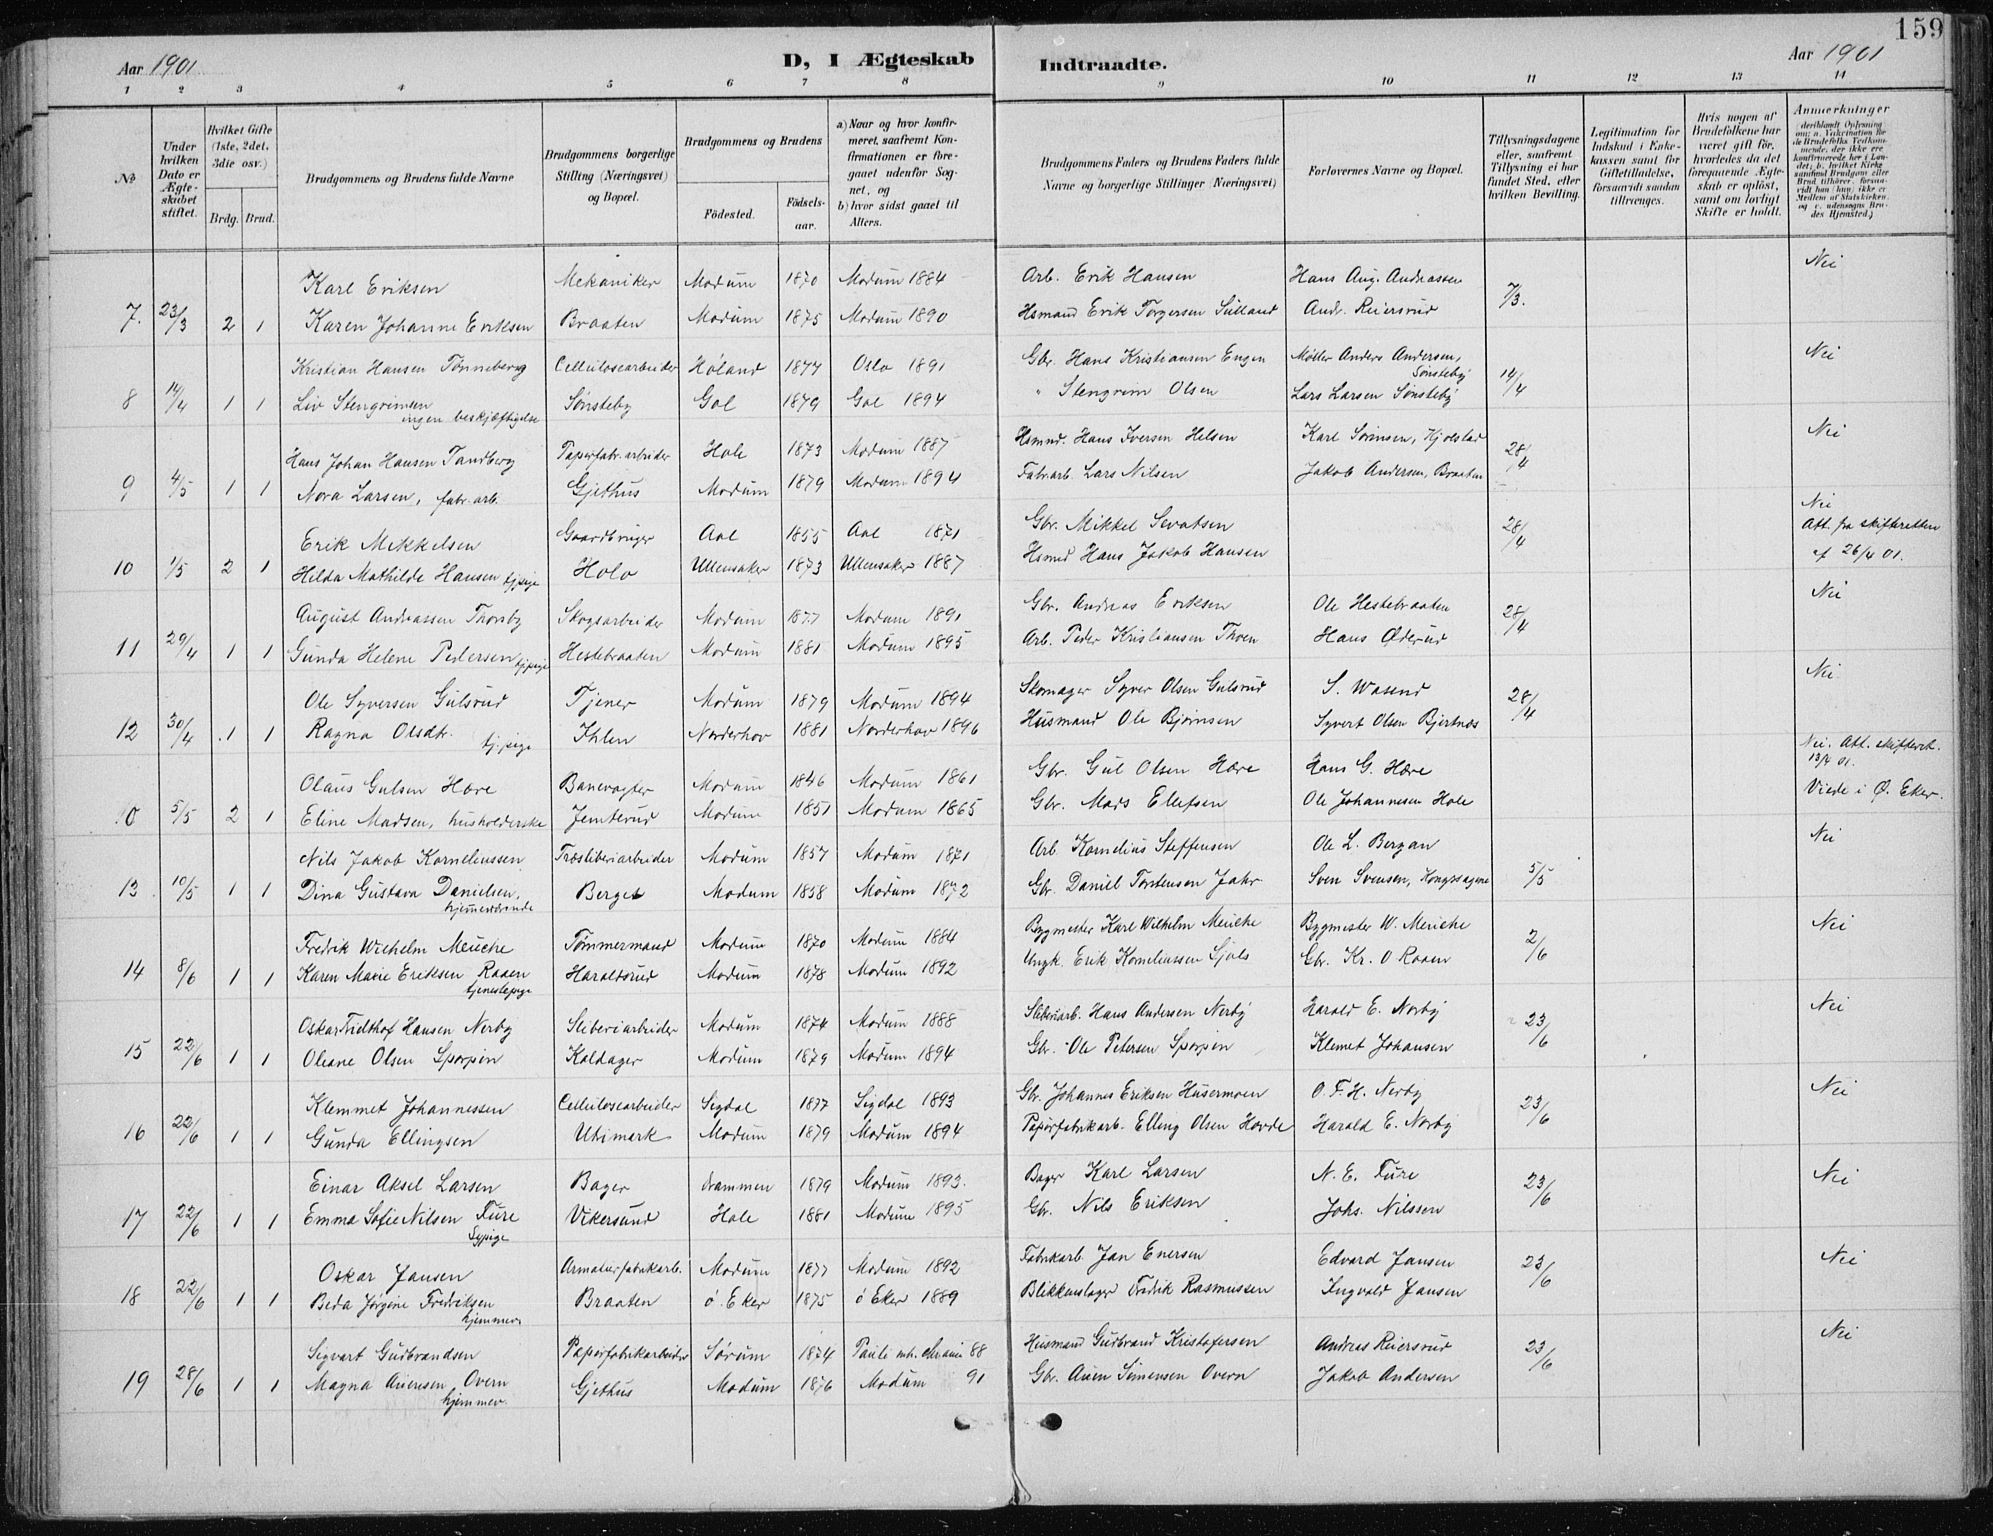 159
Aar 1901
D, I Ægteskab Indtraadte.
Aar 1901
1 2 3 4 5 6 7 8 9 10 11 12 13 14
№
Under hvilken Dato er Ægteskabet stiftet.
Hvilket Gifte (1ste, 2det, 3die osv.)
Brdg. Brud.
Brudgommens og Brudens fulde Navne
Brudgommens borgerlige Stilling (Næringsvei) og Bopæl.
Brudgommens og Brudens
Fødested.
Fødsels-aar.
a) Naar og hvor konfirmeret, saafremt Konfirmationen er foregaaet udenfor Sognet, og
b) hvor sidst gaaet til Alters.
Brudgommens Faders og Brudens Faders fulde Navne og borgerlige Stillinger (Næringsvei)
Forlovernes Navne og Bopæl.
Tillysningsdagene eller, saafremt Tillysning ei har fundet Sted, efter hvilken Bevilling.
Legitimation for Indskud i Enkekassen samt for Giftetilladelse, forsaavidt saadan tiltrænges.
Hvis nogen af Brudefolkene har været gift før, hvorledes da det foregaaende Ægteskab er opløst, samt om lovligt Skifte er holdt.
Anmerkninger
Karl Eriksen Mekaniker Modum 1870 Modum 1884 Arb. Erik Hansen Hans Aug. Andreassen Nei
7. 23/3 2 1 Karen Johanne Eriksen Braaten Modum 1875 Modum 1890 Hsmand Erik Torgersen Sulland And. Reiersrud 7/3.
Kristian Hansen Tønneberg Cellulosearbeider Høland 1877 Oslo 1891 Gbr. Hans Kristiansen Engen Møller Anders Andersen, Sønsteby Nei
8 14/4 1 1 Liv Stengrimsen Sønsteby Gol 1879 Gol 1894 " Stengrim Olsen Lars Larsen Sønsteby 14/4
ingen beskjæftigelse
Hans Johan Hansen Tandberg Papirfabr.arbeider Hole 1873 Modum 1887 Hsmnd. Hans Iversen Helsen Karl Sørensen, Hjolstad Nei
9 4/5 1 1 Nora Larsen, fabr.arb. Gjethus Modum 1879 Modum 1894 Fabr.arb. Lars Nilsen Jakob Andersen, Braaten 28/4
Erik Mikkelsen Gaardbruger Aal 1855 Aal 1871 Gbr. Mikkel Sevatsen 28/4 Nei Att. fra skifteretten
10 1/5 2 1 Hilda Mathilde Hansen tjpige Holo Ullensaker 1873 Ullensaker 1887 Hsmnd Hans Jakob Hansen af 26/4 01.
August Andreassen Thorsby Skogsarbeider Modum 1877 Modum 1891 Gbr. Andreas Eriksen Ole Hestebraaten Nei
11 29/4 1 1 Gunda Helene Pedersen tjpige Hestebraaten Modum 1881 Modum 1895 Arb. Peder Kristiansen Thoen Hans Øderud 28/4
Ole Syversen Gulsrud Tjener Modum 1879 Modum 1894 Skomager Syver Olsen Gulsrud S. Wasend Nei
12 30/4 1 1 Ragna Olsdtr. tj.pige Ihlen Norderhov 1881 Norderhov 1896 Husmand Ole Bjørnsen Syvert Olsen Bjertnæs 28/4
Olaus Gulsen Hære Banevogter Modum 1846 Modum 1861 Gbr. Gul Olsen Hære Hans G. Hære Nei. Att. skifteret. 13/4 01.
0 5/5 2 1 Eline Madsen, husholderske Jemterud Modum 1851 Modum 1865 Gbr. Mads Ellefsen Ole Johannesen Hole Viede i Ø. Eker.
Nils Jakob Korneliussen Træsliberiarbeider Modum 1857 Modum 1871 Arb. Kornelius Steffensen Ole L. Bergan Nei
13 10/5 1 1 Dina Gustava Danielsen, Berget Modum 1858 Modum 1872 Gbr. Daniel Torstensen Jahr Sven Svensen, Kongssagene 5/5
hjemmeværende
Fredrik Wilhelm Meuche Tømmermand Modum 1870 Modum 1884 Bygmester Karl Wilhelm Meuche Bygmester W. Meuche Nei
14 8/6 1 1 Karen Marie Eriksen Raaen Haraldsrud Modum 1878 Modum 1892 Ungk. Erik Korneliussen Sjøls Gbr. Kr. O Raaen 2/6
tjenestepige
Oskar Fridthof Hansen Nerby Sliberiarbeider Modum 1874 Modum 1888 Sliberiarb. Hans Andersen Nerby Harald E. Norby Nei
15 22/6 1 1 Oleane Olsen Sporpin Kaldager Modum 1879 Modum 1894 Gbr. Ole Petersen Sporpin Klemet Johansen 23/6
Klemmet Johannessen Cellulosearbeider Sigdal 1877 Sigdal 1893 Gbr. Johannes Eriksen Husermoen O. F. H. Nerby Nei
16 22/6 1 1 Gunda Ellingsen Utimark Modum 1879 Modum 1894 Papirfabrikarb. Elling Olsen Hovde Harald E. Norby 23/6
Einar Aksel Larsen Bager Drammen 1879 Modum 1893. Bager Karl Larsen N. E. Fure Nei
17 22/6 1 1 Emma Sofie Nilsen Fure Vikersund Hole 1881 Modum 1895 Gbr. Nils Eriksen Johs. Nilssen 23/6
Sypige
Oskar Jansen Armaturfabrikarb. Modum 1877 Modum 1892 Fabrikarb. Jan Enersen Edvard Jansen Nei
18 22/6 1 1 Beda Jørgine Fredriksen Braaten ø. Eker 1875 ø Eker 1889 Blikkenslager Fredrik Rasmussen Ingvald Jansen 23/6
hjemmev.
Sigvart Gudbrandsen Papirfabrikarbeider Sørum 1874 Pauli mh. Xrania 88 Husmand Gudbrand Kristofersen Andreas Reiersrud Nei
19 28/6 1 1 Magna Auensen Overn Gjethus Modum 1876 Modum 91 Gbr. Auen Simensen Overn Jakob Andersen 23/6
hjemmev.